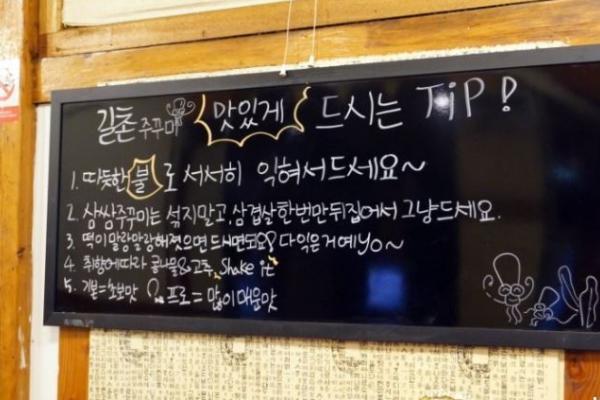 길촌 주꾸미 맛있게 드시는 TiP!
1. 따듯한 불로 서서히 익혀서드세요~
2. 삼쌈주꾸미는 섞지말고, 삼겹살한번만뒤집에서 그냥드세요.
3. 떡이 말랑말랑해졌으면 드시면되요! 다익은거예yo~
4. 취향에따라 콩나물&고추, Shake it
5. 기본=초보맛 프로=많이 매운맛